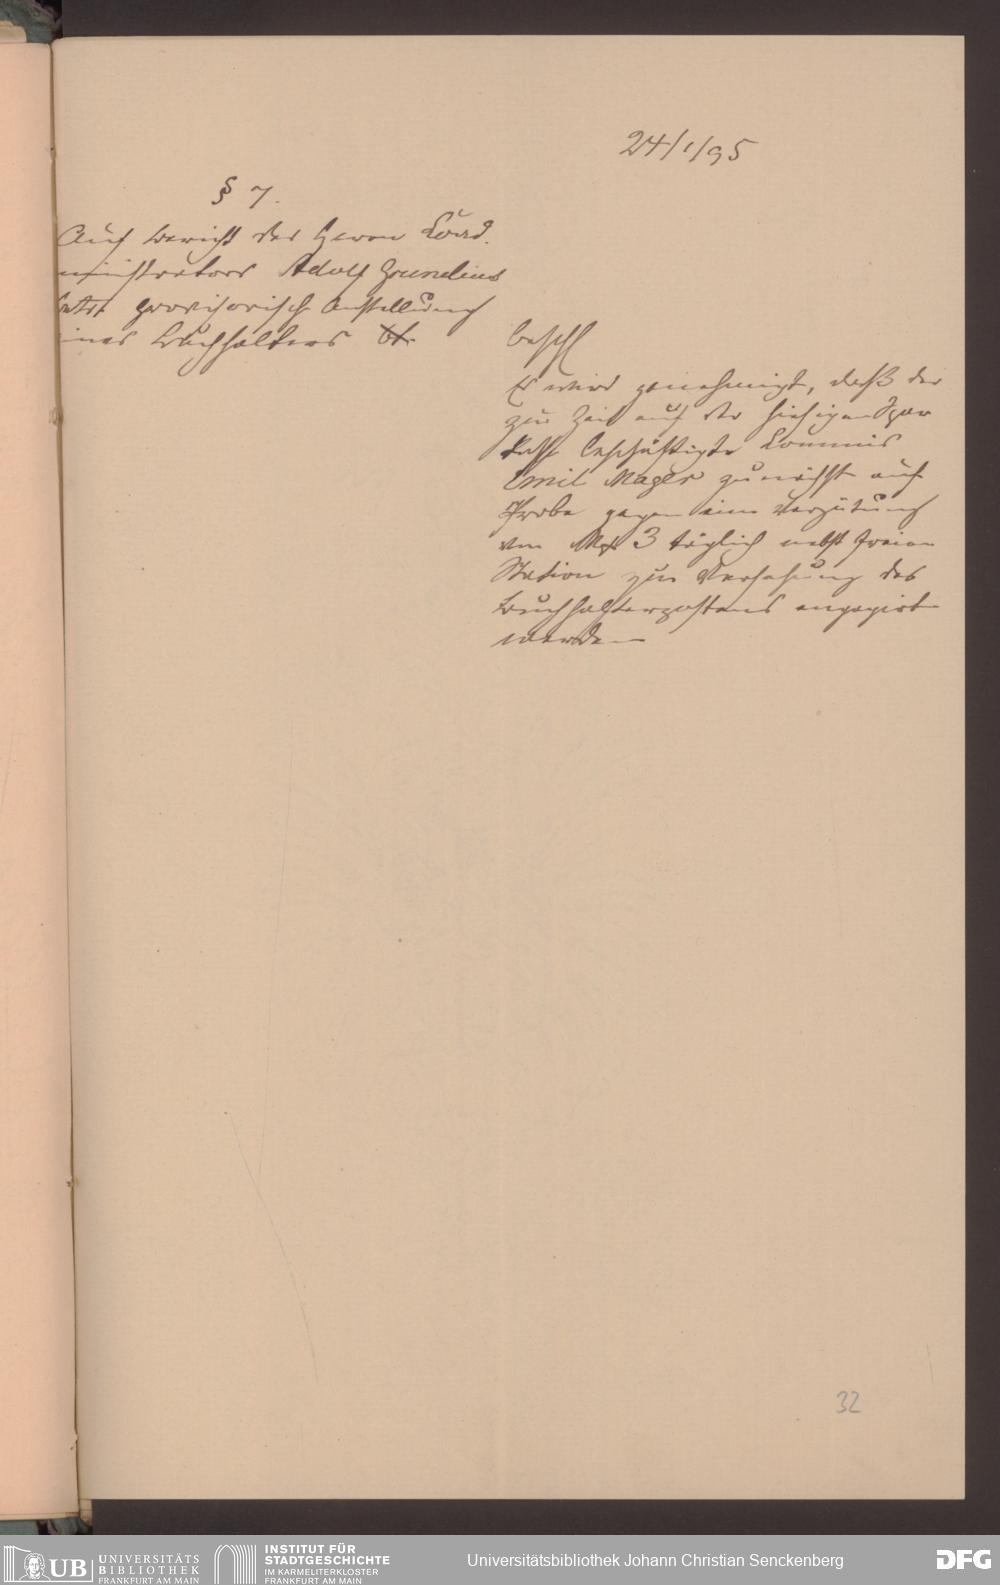 24/1/95
§ 7.
Auf Bericht des Herrn Coad.
ministrators Adolf Grunelius
betrf provisorische Anstellung
eines Buchhalters
beschl
Es wird genehmigt, daß der
zur Zeit auf der hiesigen Spar
kasse beschäftigte Commis
Emil Mager zunächst auf
Probe gegen eine Vergütung
von Mk 3 täglich nebst freier
Station zur Versehung des
Buchhalterpostens engagirt
werde
32
UB UNIVERSITÄTS
BIBLIOTHEK
FRANKFURT AM MAIN
INSTITUT FÜR
STADTGESCHICHTE
IM KARMELITERKLOSTER
FRANKFURT AM MAIN
Universitätsbibliothek Johann Christian Senckenberg
DFG